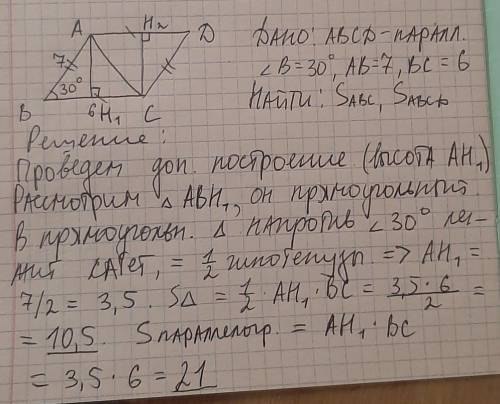 A H₂ D
7 30° 6 H₁
B C
Дано: ABCD-паралл.
∠B=30°, AB=7, BC=6
Найти: SABC, SABCD
Решение:
Проведем доп. построение (высота AH₁)
Рассмотрим △ABH₁, он прямоугольный.
В прямоугольн. △ напротив ∠30° ле-
жит катет, = 1/2 гипотенузы => AH₁ =
7/2 = 3,5. S△ = 1/2 · AH₁ · BC = 3,5·6/2 =
= 10,5. Sпараллелогр. = AH₁ · BC
= 3,5 · 6 = 21